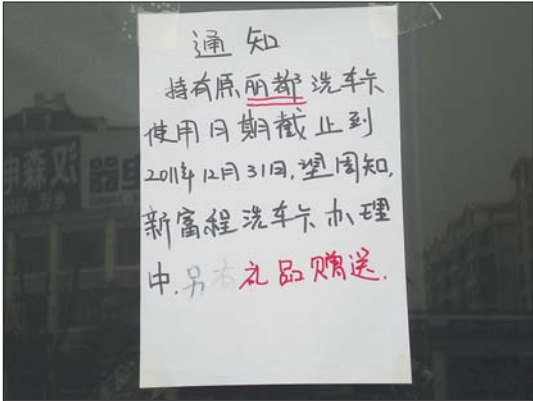 通知
持有原丽都洗车卡
使用日期截止到
2011年12月31日,望周知,
新富程洗车卡办理
中.另有礼品赠送.